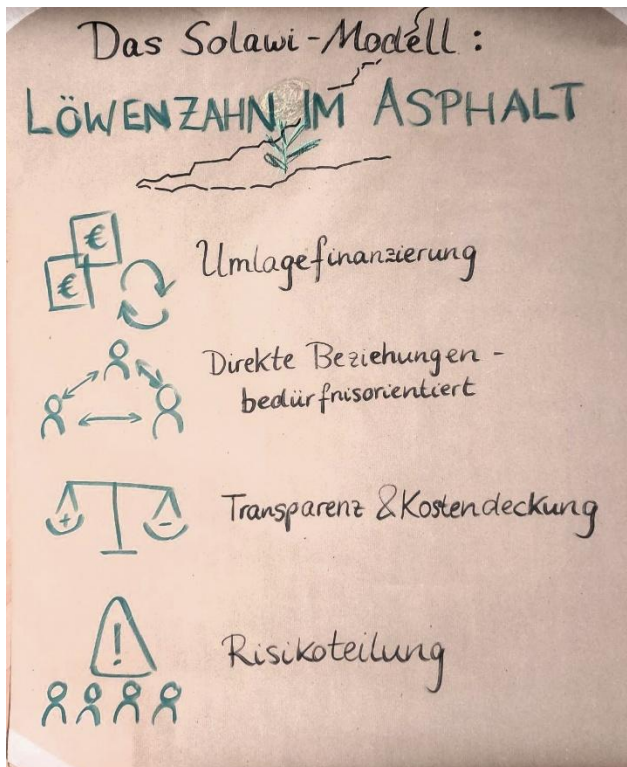 Das Solawi-Modell:
LÖWENZAHN IM ASPHALT
€
€
Umlagefinanzierung
Direkte Beziehungen -
bedürfnisorientiert
+ -
Transparenz & Kostendeckung
!
Risikoteilung